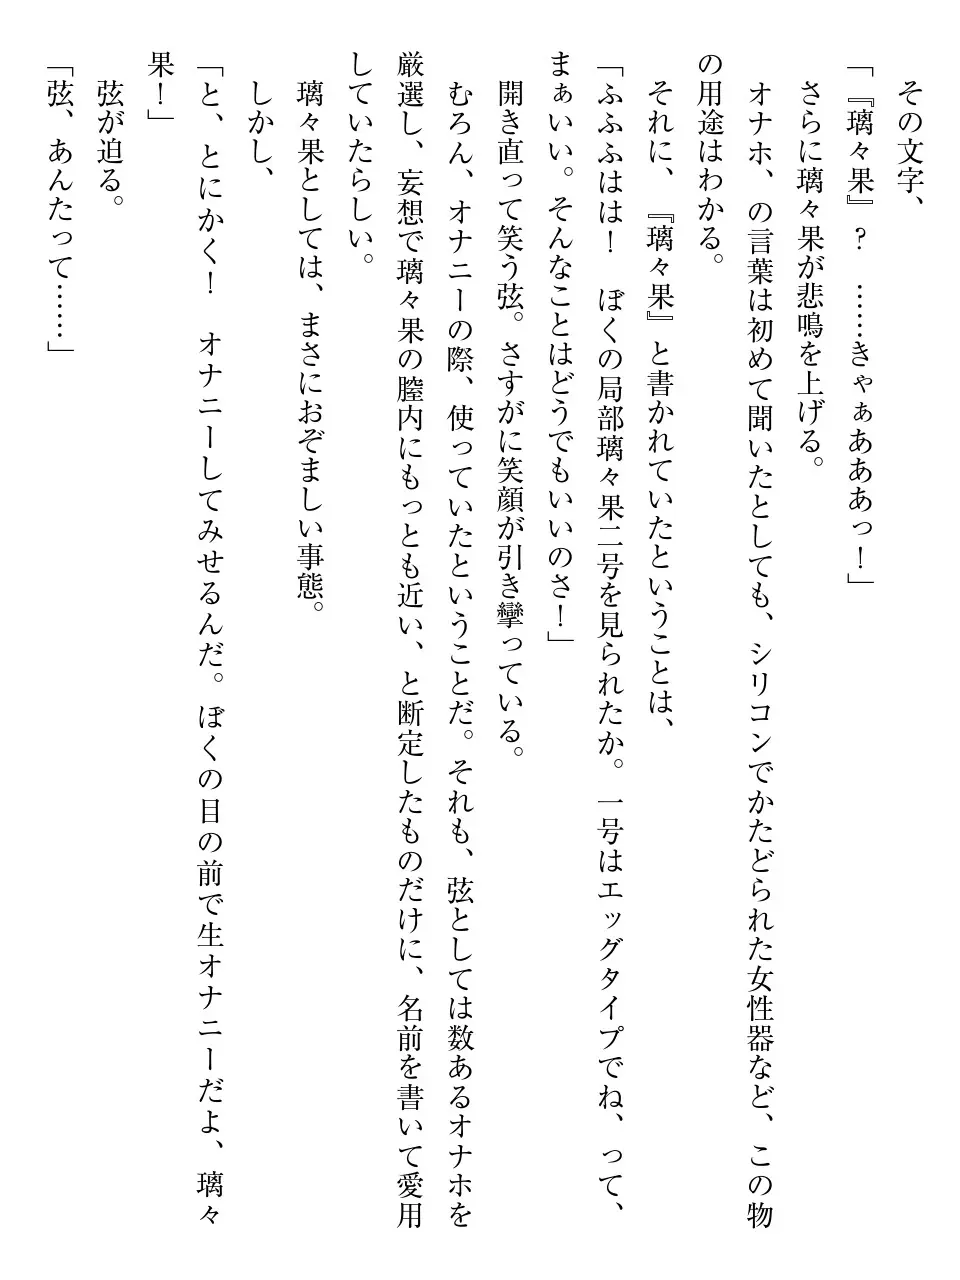 その文字、
「『璃々果』?　……きゃぁあああっ!」
さらに璃々果が悲鳴を上げる。
オナホ、の言葉は初めて聞いたとしても、シリコンでかたどられた女性器など、この物
の用途はわかる。
それに、『璃々果』と書かれていたということは、
「ふふふはは!　ぼくの局部璃々果二号を見られたか。一号はエッグタイプでね、って、
まぁいい。そんなことはどうでもいいのさ!」
開き直って笑う弦。さすがに笑顔が引き攣っている。
むろん、オナニーの際、使っていたということだ。それも、弦としては数あるオナホを
厳選し、妄想で璃々果の膣内にもっとも近い、と断定したものだけに、名前を書いて愛用
していたらしい。
璃々果としては、まさにおぞましい事態。
しかし、
「と、とにかく!　オナニーしてみせるんだ。ぼくの目の前で生オナニーだよ、璃々
果!」
弦が迫る。
「弦、あんたって……」